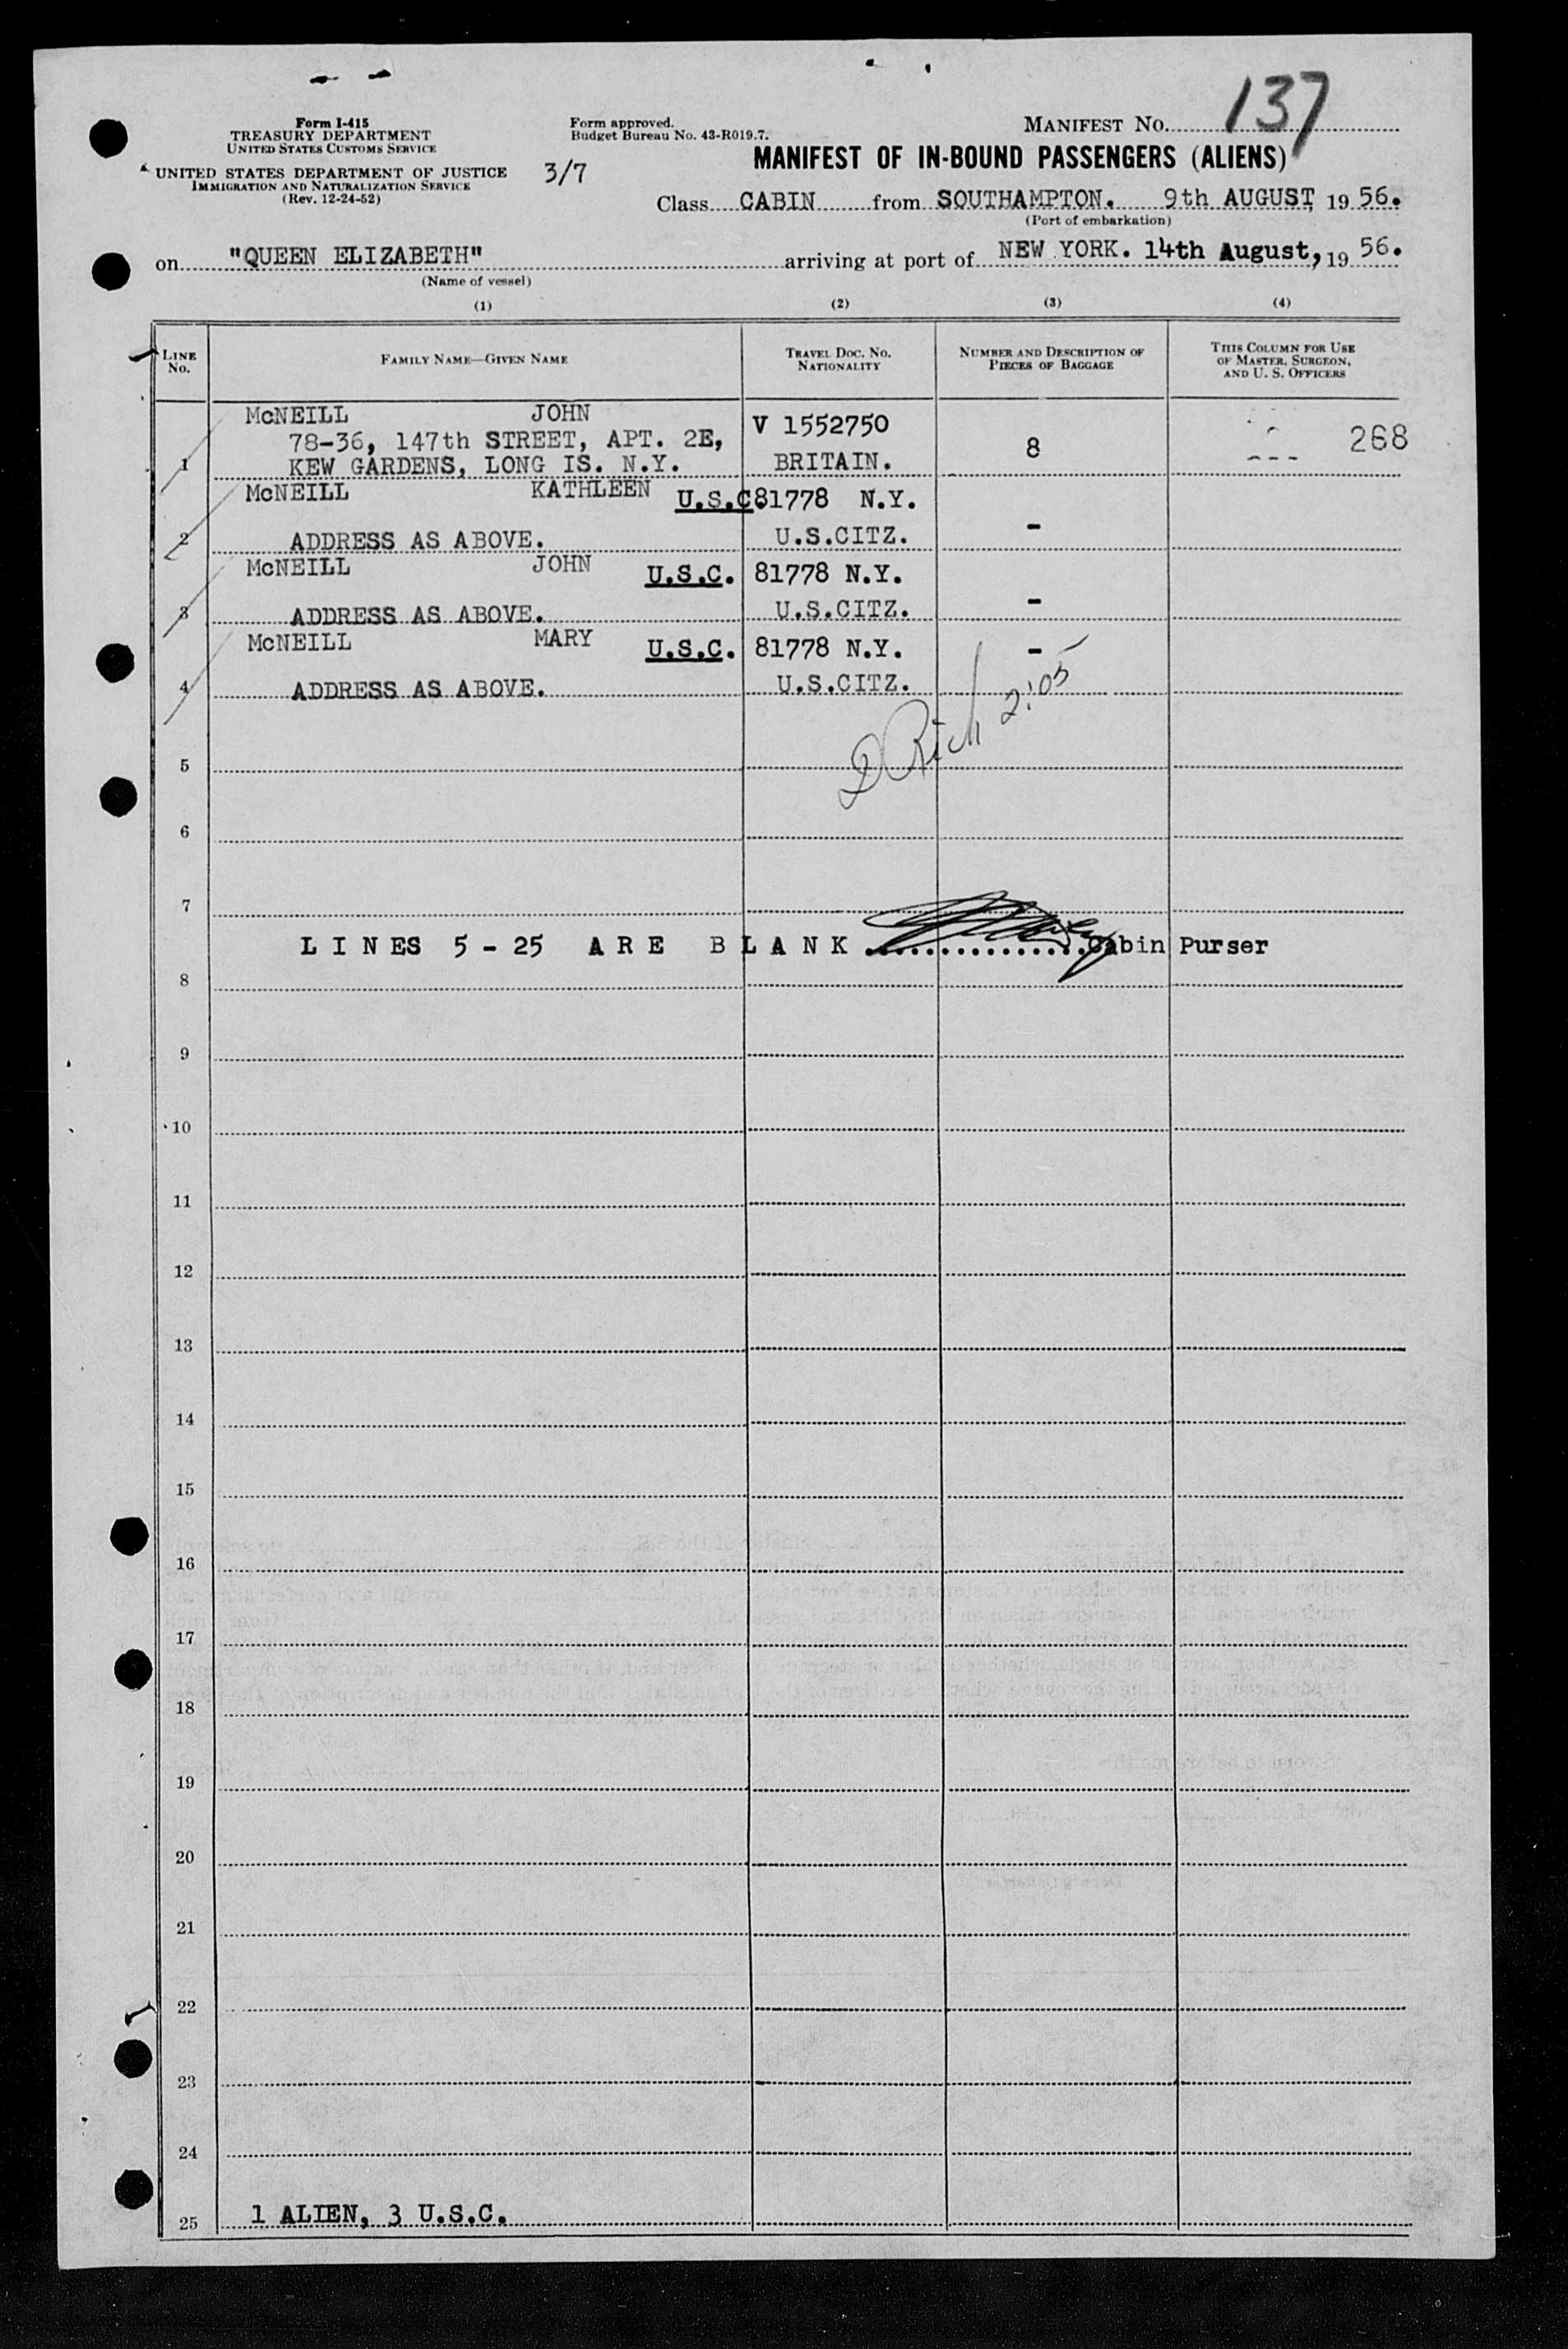 137
Form I-415
TREASURY DEPARTMENT
UNITED STATES CUSTOMS SERVICE
UNITED STATES DEPARTMENT OF JUSTICE
IMMIGRATION AND NATURALIZATION SERVICE
(Rev. 12-24-52)
Form approved.
Budget Bureau No. 43-R019.7.
3/7
MANIFEST NO.
MANIFEST OF IN-BOUND PASSENGERS (ALIENS)
Class CABIN from SOUTHAMPTON. 9th AUGUST, 19 56.
(Port of embarkation)
on "QUEEN ELIZABETH" arriving at port of NEW YORK. 14th August, 19 56.
(Name of vessel)
(1) (2) (3) (4)
LINE No. FAMILY NAME—GIVEN NAME TRAVEL DOC. NO. NATIONALITY NUMBER AND DESCRIPTION OF PIECES OF BAGGAGE THIS COLUMN FOR USE OF MASTER, SURGEON, AND U. S. OFFICERS
McNEILL JOHN V 1552750
78-36, 147th STREET, APT. 2E, 8 268
1 KEW GARDENS, LONG IS. N.Y. BRITAIN.
McNEILL KATHLEEN U.S.C. 81778 N.Y. -
2 ADDRESS AS ABOVE. U.S.CITZ.
McNEILL JOHN U.S.C. 81778 N.Y. -
3 ADDRESS AS ABOVE. U.S.CITZ.
McNEILL MARY U.S.C. 81778 N.Y. -
4 ADDRESS AS ABOVE. U.S.CITZ.
D Rich 2:05
5
6
7
LINES 5 - 25 ARE BLANK Cabin Purser
8
9
10
11
12
13
14
15
16
17
18
19
20
21
22
23
24
25 1 ALIEN, 3 U.S.C.